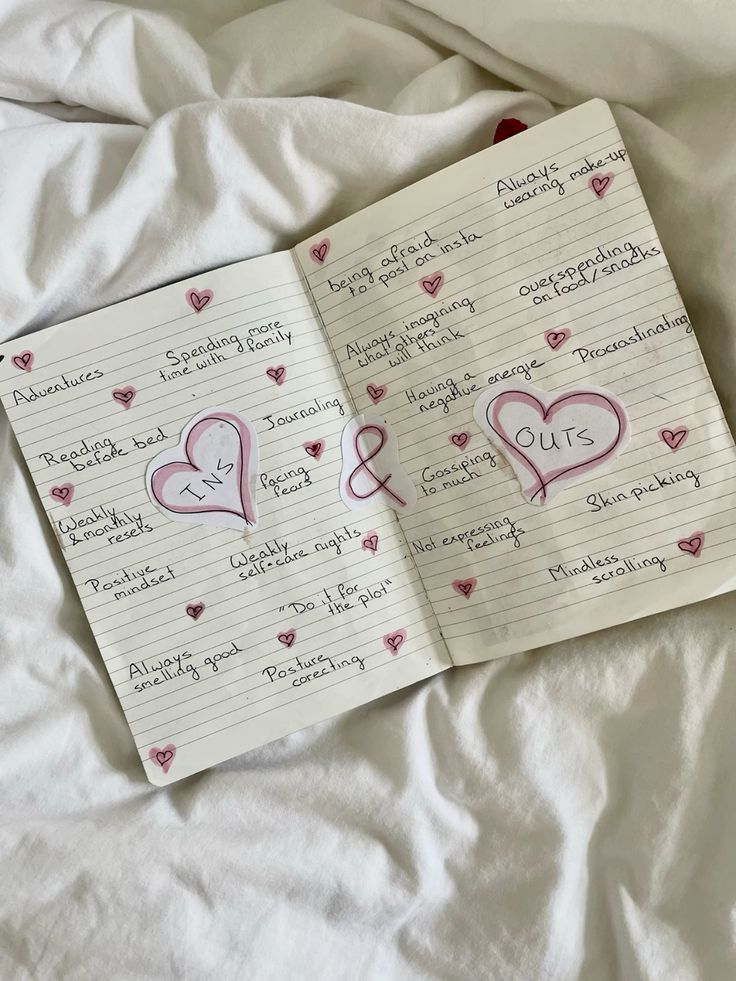 Adventures
Spending more
time with family
Reading
before bed
INS
Journaling
facing
fears
Weakly
& monthly
resets
Weakly
self-care nights
Positive
mindset
"Do it for
the plot"
Always
smelling good
Posture
corecting
&
being afraid
to post on insta
Always
wearing make-up
Always imagining
what others
will think
overspending
on food/snacks
Having a
negative energie
Procrastinating
OUTS
Gossiping
to much
Skin picking
Not expressing
feelings
Mindless
scrolling